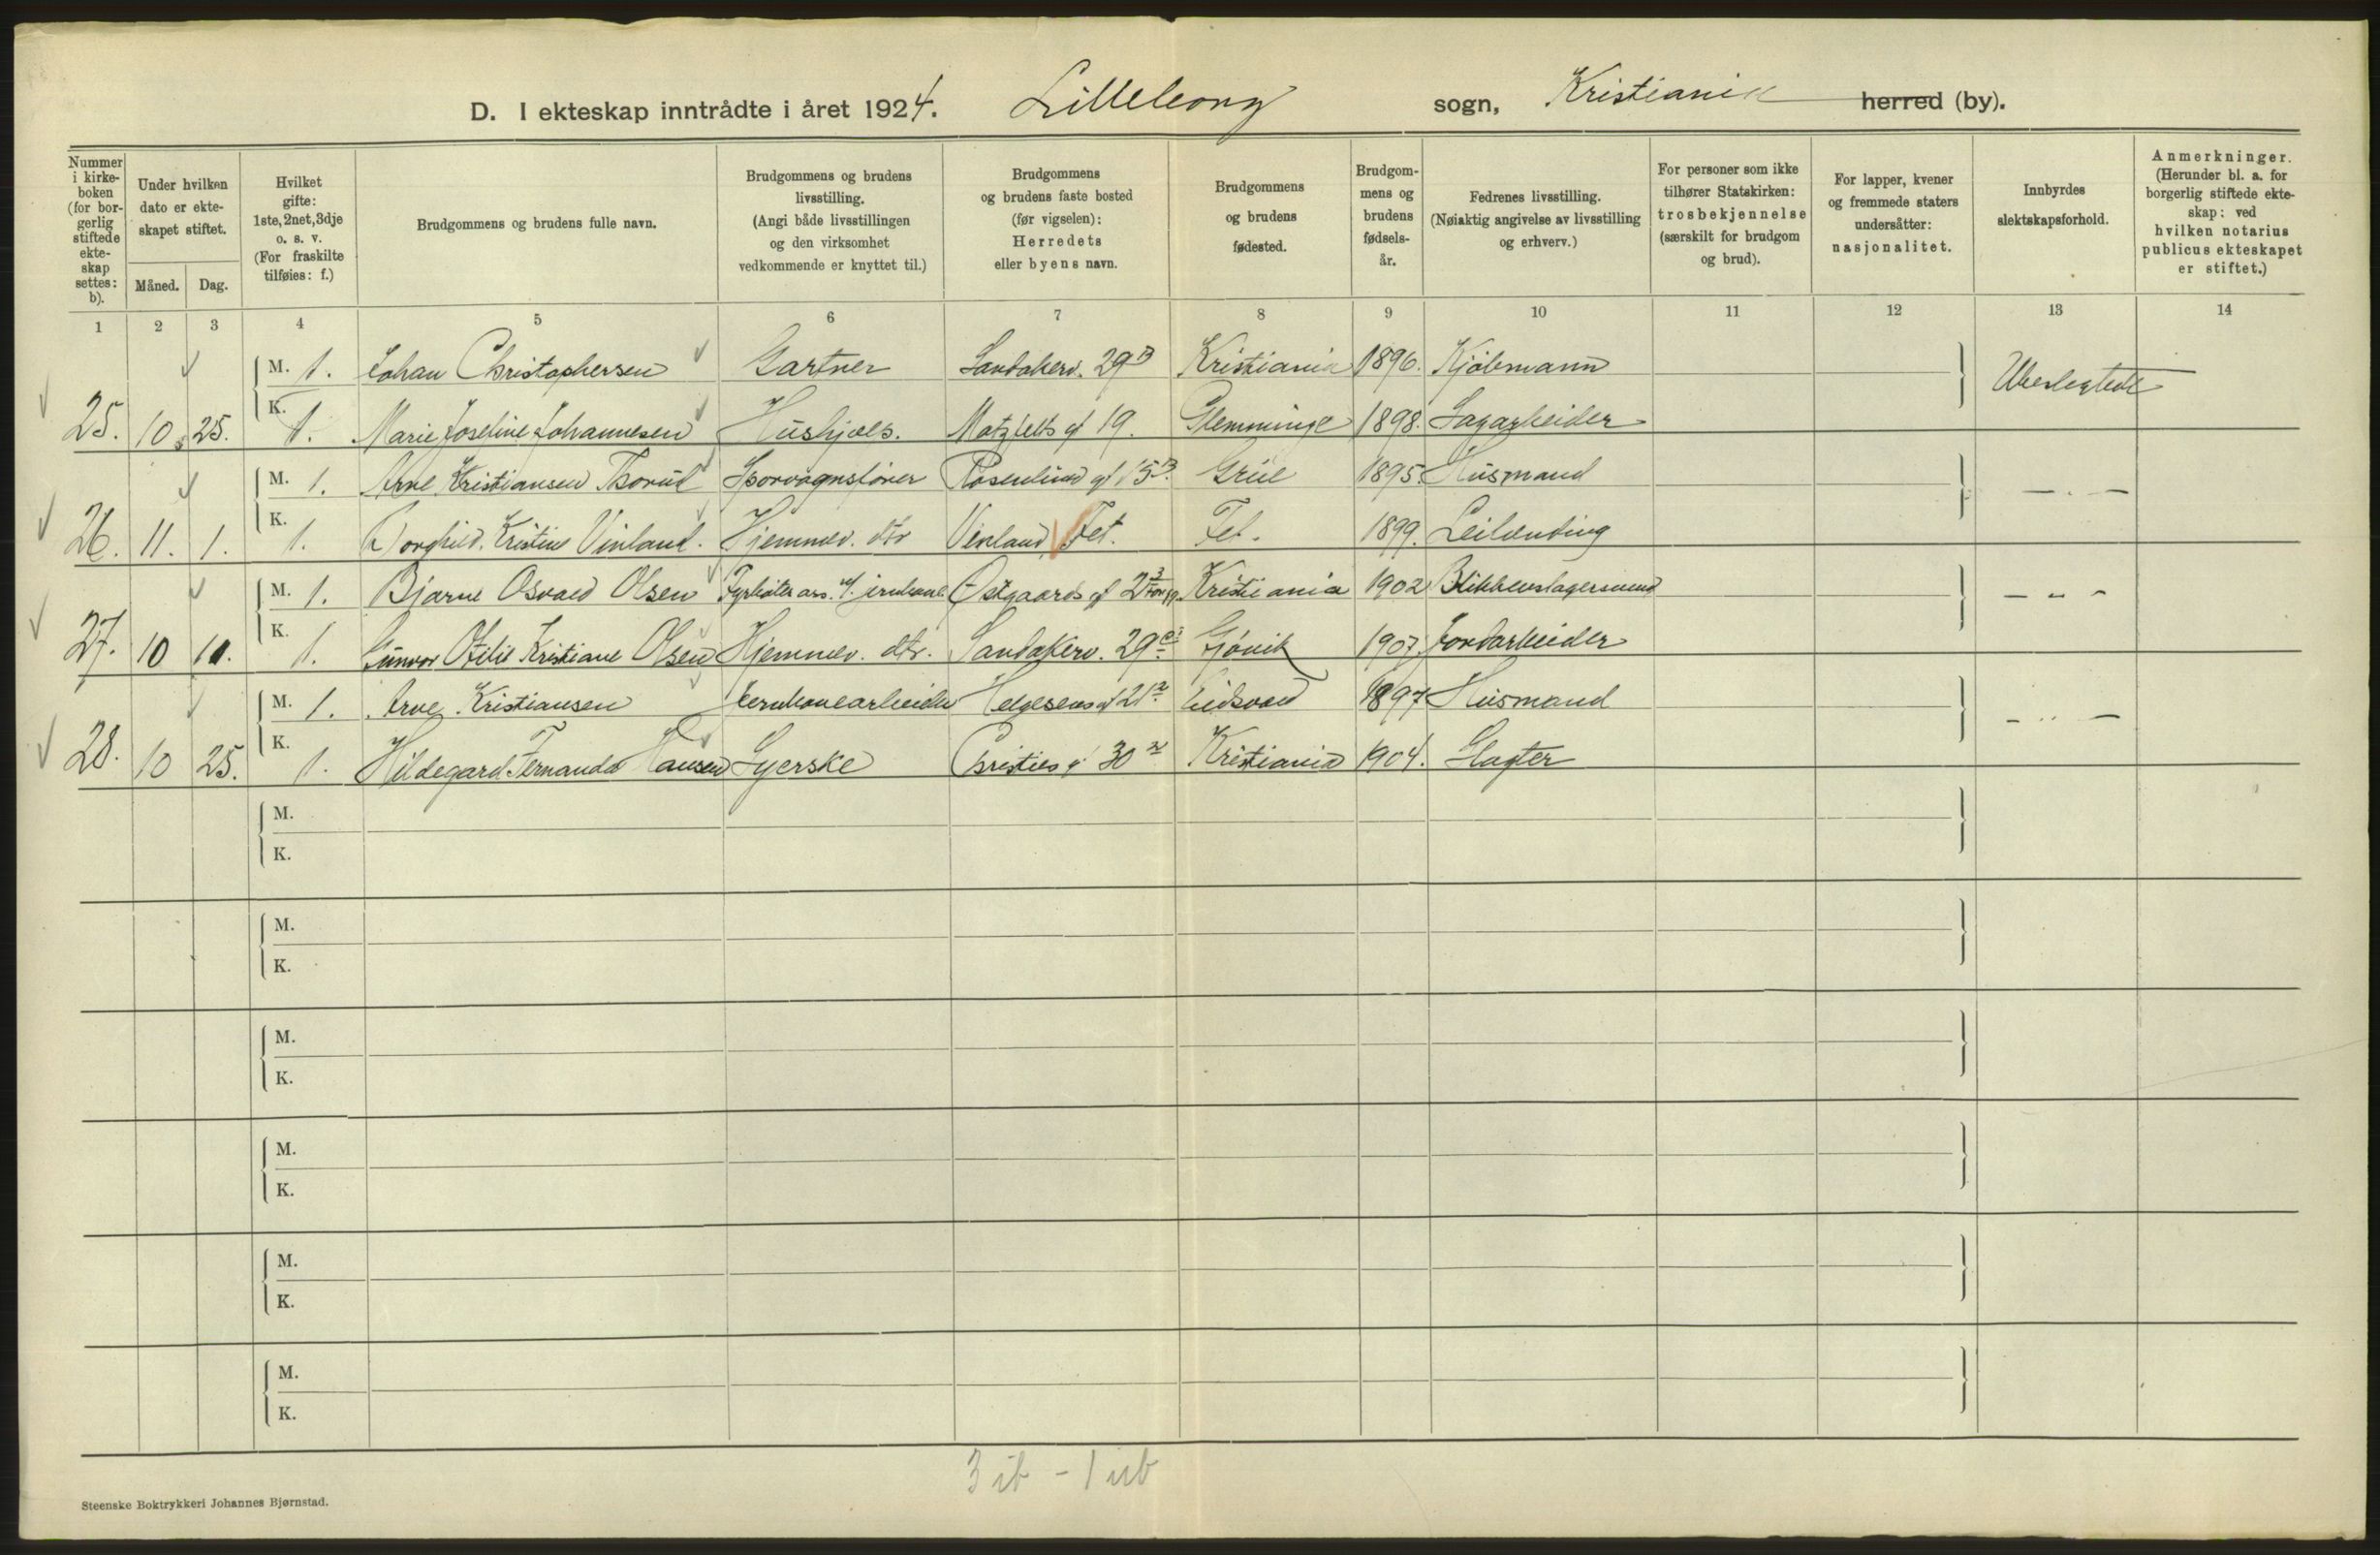 D. I ekteskap inntrådte i året 1924. Lilleborg sogn, Kristiania herred (by).
Nummer i kirkeboken (for borgerlig stiftede ekteskap settes: b).
Under hvilken dato er ekteskapet stiftet.
Måned. Dag.
Hvilket gifte: 1ste, 2net, 3dje o. s. v. (For fraskilte tilføies: f.)
Brudgommens og brudens fulle navn.
Brudgommens og brudens livsstilling. (Angi både livsstillingen og den virksomhet vedkommende er knyttet til.)
Brudgommens og brudens faste bosted (før vigselen): Herredets eller byens navn.
Brudgommens og brudens fødested.
Brudgommens og brudens fødselsår.
Fedrenes livsstilling. (Nøiaktig angivelse av livsstilling og erhverv.)
For personer som ikke tilhører Statskirken: trosbekjennelse (særskilt for brudgom og brud).
For lapper, kvener og fremmede staters undersåtter: nasjonalitet.
Innbyrdes slektskapsforhold.
Anmerkninger. (Herunder bl. a. for borgerlig stiftede ekteskap: ved hvilken notarius publicus ekteskapet er stiftet.)
1 2 3 4 5 6 7 8 9 10 11 12 13 14
M. 1. Johan Christophersen Gartner Sandakerv. 29 B Kristiania 1896. Kjøbmann Ubeslegtede
25. 10. 25. K. 1. Marie Josefine Johannesen Hushjælp. 19. Glemminge 1898. Sagarbeider
M. 1. Arne Kristiansen Thorud Sporvognsfører Rosenlund gt 15 B. Grue 1895. Husmand — . —
26. 11. 1. K. 1. Borghild. Kristine Vinland. Hjemmev. dtr Vinland, Fet. Fet. 1899. Leilending
M. 1. Bjarne Osvald Olsen Østgaards gt 2 Kristiania 1902 Blikkenslagersvend — „ —
27. 10 11. K. 1. Gunvor Otilie Kristiane Olsen Hjemmev. dtr. Sandakerv. 29 Gjøvik 1907. Jordarbeider
M. 1. Arve Kristiansen Jernvarearbeider Helgesens gt 21 Eidsvold 1897 Husmand — .. —
28. 10 25. K. 1. Hildegard Fernanda Hansen Syerske Christies gt 30 Kristiania 1904. Slagter
M.
K.
M.
K.
M.
K.
M.
K.
M.
K.
M.
K.
3 ib - 1 ub
Steenske Boktrykkeri Johannes Bjørnstad.